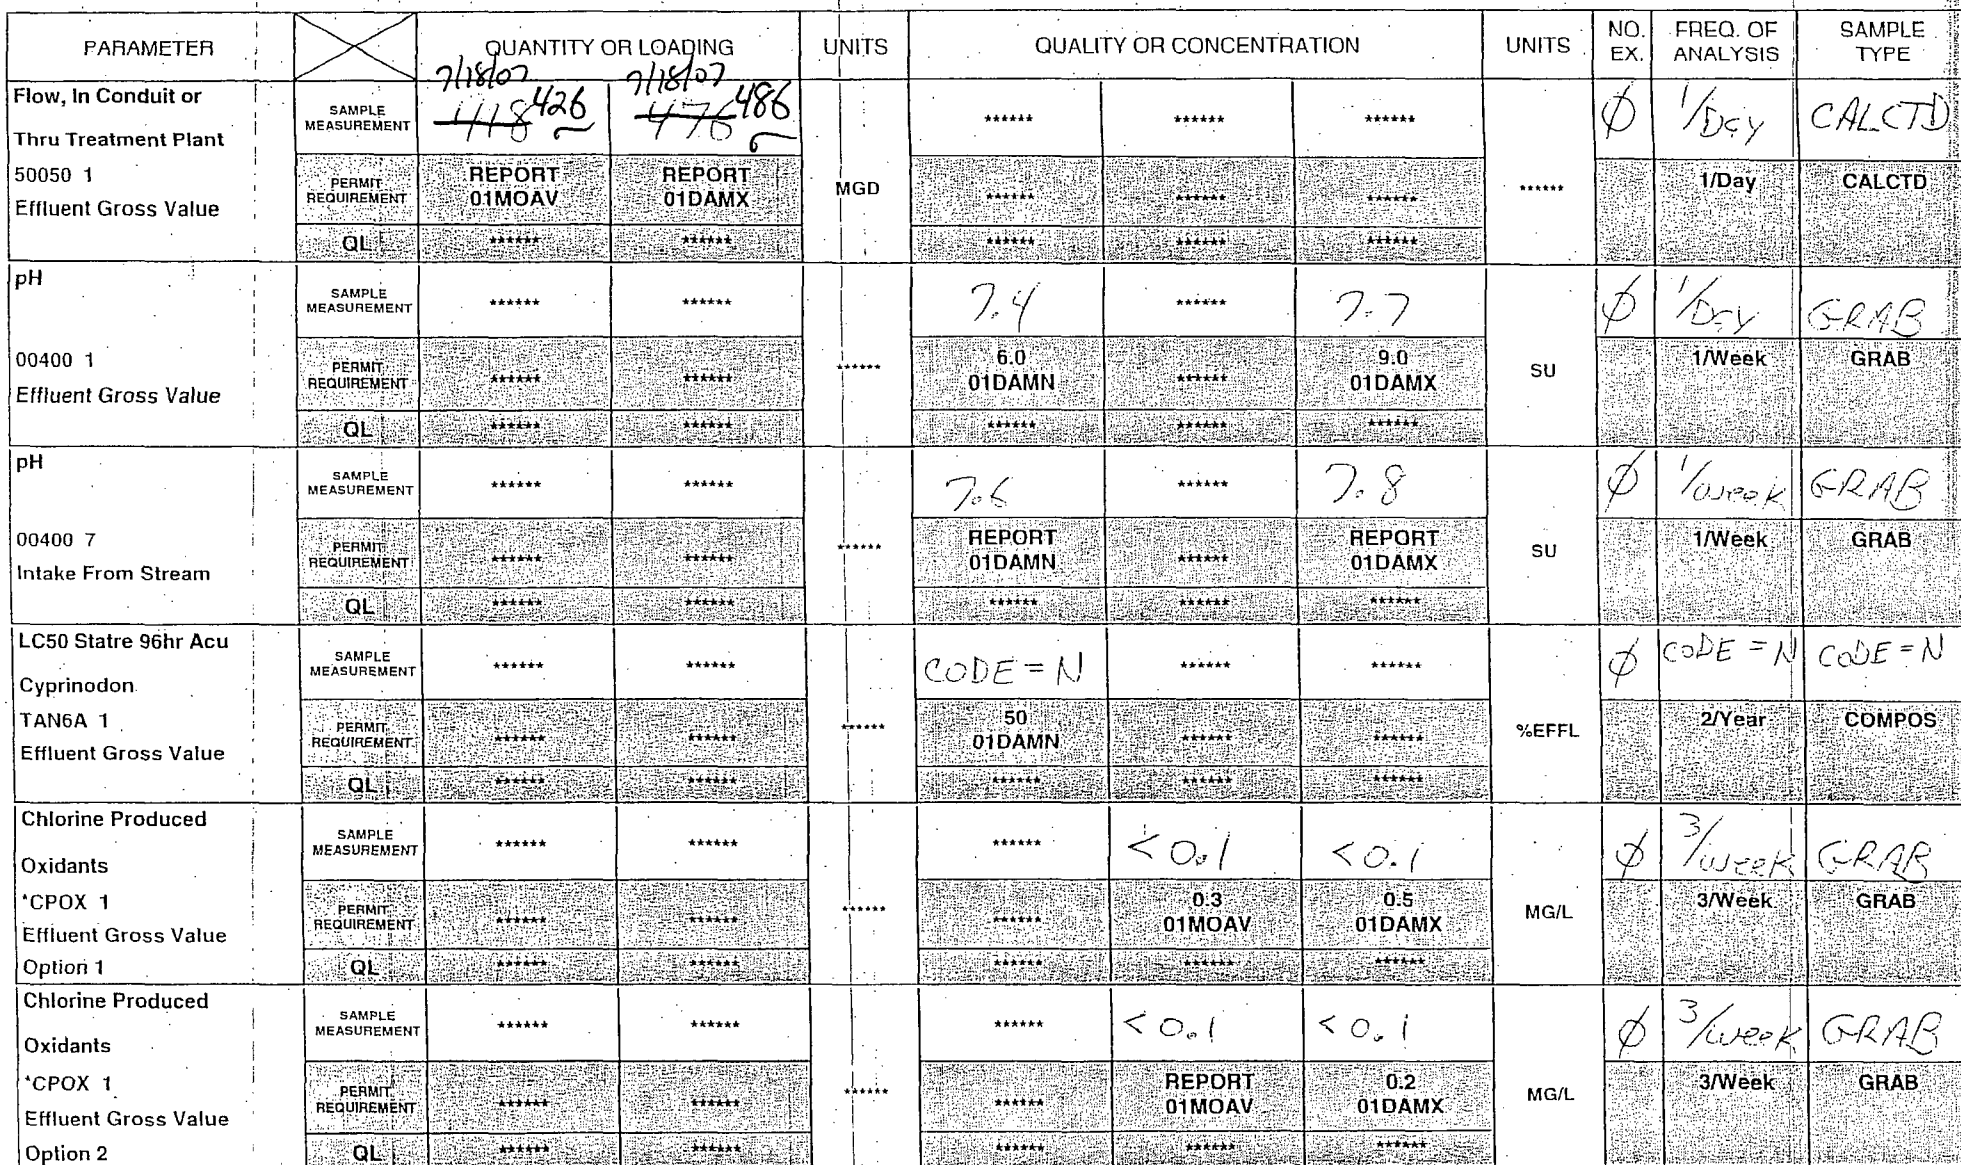 PARAMETER QUANTITY OR LOADING UNITS QUALITY OR CONCENTRATION UNITS NO. EX. FREQ. OF ANALYSIS SAMPLE TYPE
7/18/07 7/18/07
Flow, In Conduit or
Thru Treatment Plant
50050 1
Effluent Gross Value
SAMPLE MEASUREMENT 418 426 476 486 ****** ****** ****** Ø 1/Day CALCTD
PERMIT REQUIREMENT REPORT 01MOAV REPORT 01DAMX MGD ****** ****** ****** ****** 1/Day CALCTD
QL ****** ****** ****** ****** ******
pH
00400 1
Effluent Gross Value
SAMPLE MEASUREMENT ****** ****** 7.4 ****** 7.7 Ø 1/Day GRAB
PERMIT REQUIREMENT ****** ****** ****** 6.0 01DAMN ****** 9.0 01DAMX SU 1/Week GRAB
QL ****** ****** ****** ****** ******
pH
00400 7
Intake From Stream
SAMPLE MEASUREMENT ****** ****** 7.6 ****** 7.8 Ø 1/week GRAB
PERMIT REQUIREMENT ****** ****** ****** REPORT 01DAMN ****** REPORT 01DAMX SU 1/Week GRAB
QL ****** ****** ****** ****** ******
LC50 Statre 96hr Acu
Cyprinodon
TAN6A 1
Effluent Gross Value
SAMPLE MEASUREMENT ****** ****** CODE = N ****** ****** Ø CODE = N CODE = N
PERMIT REQUIREMENT ****** ****** ****** 50 01DAMN ****** ****** %EFFL 2/Year COMPOS
QL ****** ****** ****** ****** ******
Chlorine Produced
Oxidants
*CPOX 1
Effluent Gross Value
Option 1
SAMPLE MEASUREMENT ****** ****** ****** < 0.1 < 0.1 Ø 3/week GRAB
PERMIT REQUIREMENT ****** ****** ****** ****** 0.3 01MOAV 0.5 01DAMX MG/L 3/Week GRAB
QL ****** ****** ****** ****** ******
Chlorine Produced
Oxidants
*CPOX 1
Effluent Gross Value
Option 2
SAMPLE MEASUREMENT ****** ****** ****** < 0.1 < 0.1 Ø 3/week GRAB
PERMIT REQUIREMENT ****** ****** ****** ****** REPORT 01MOAV 0.2 01DAMX MG/L 3/Week GRAB
QL ****** ****** ****** ****** ******